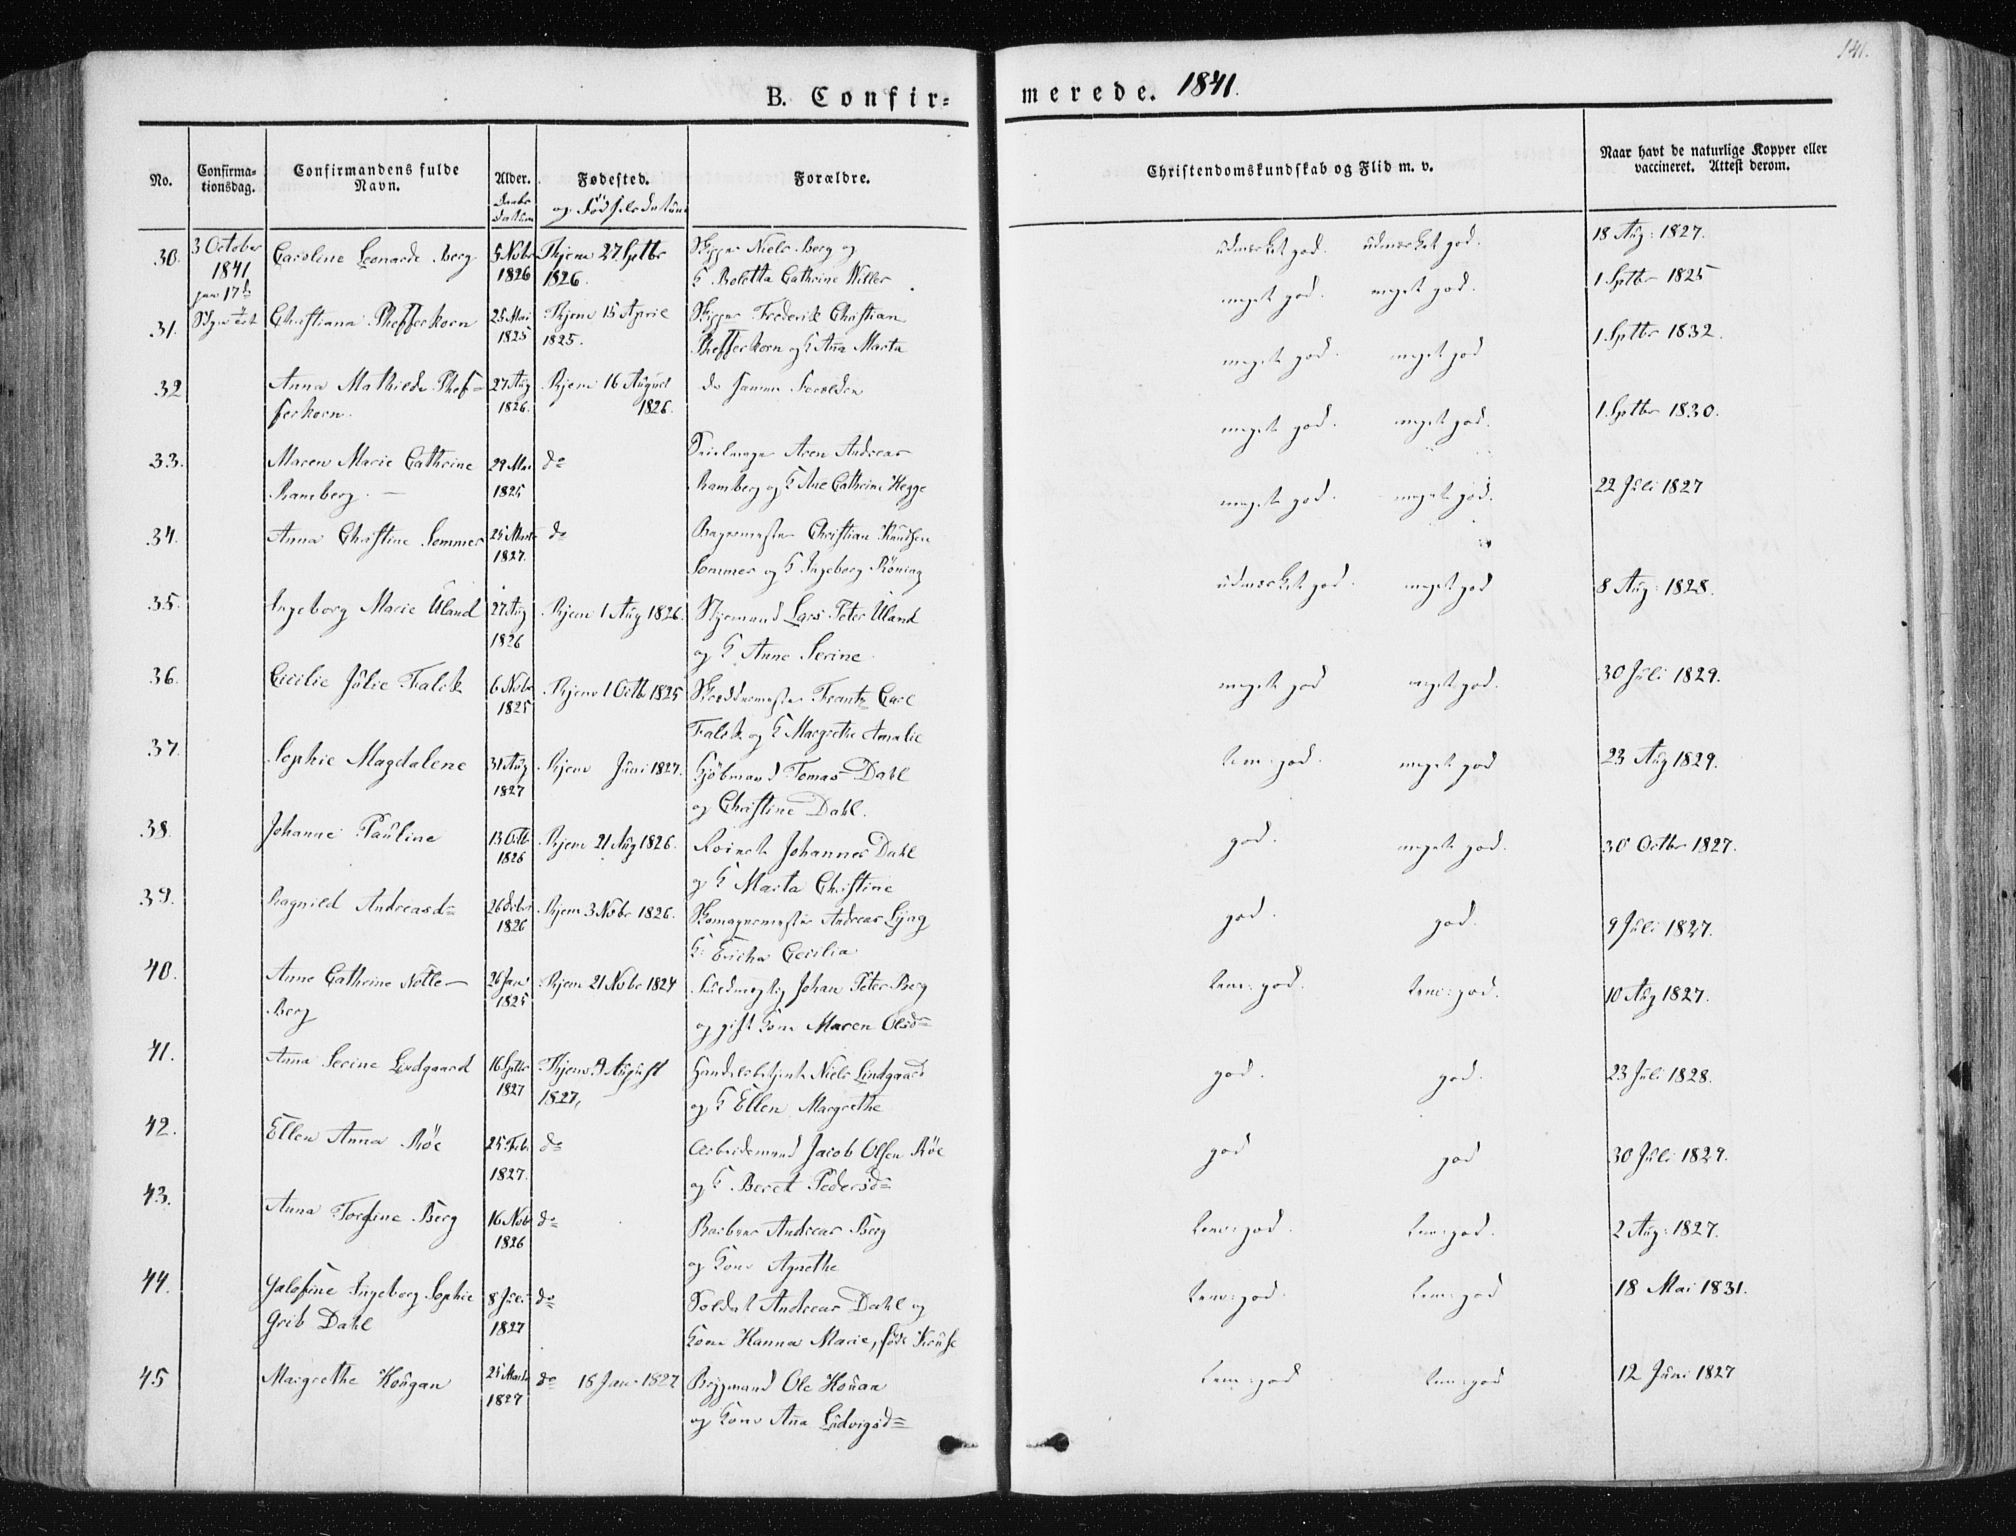 141.
B. Confir=
merede. 1841.
No.
Confirma-
tionsdag.
Confirmandens fulde
Navn.
Alder.
Daabs
Datum
Fødested.
og Fødselsdatum
Forældre.
Christendomskundskab og Flid m. v.
Naar havt de naturlige Kopper eller
vaccineret. Attest derom.
30. 3 October Carolene Leonarde Berg 5 Nobr Thjem 27 Septbr Skipper Niels Berg og udmærket god. udmærket god. 18 Aug: 1827.
1841 1826 1826. K Boletta Cathrine Willer
31. Christiana Phefferkorn 25 Mai Thjem 15 April Skipper Frederik Christian meget god. meget god. 1 Septbr 1825
1825 1825. Phefferkorn og K Ana Marta
32 Anna Mathilde Phef= 27 Aug Thjem 16 August do samme Forældre meget god. meget god 1 Septbr 1832.
ferkorn. 1826. 1826.
33. Maren Marie Cathrine 29 Mai do Aren Andreas meget god. meget god. 1 Septbr 1830.
Ramberg. 1825 Ramberg og K Ane Cathrine Hegge
34. Anna Christine Sommer 25 Marts do Bagermester Christian Knudsen meget god. meget god. 22 Juli 1827
1827. Sommer og K Ingeborg Röning
35. Ingeborg Marie Uland 27 Aug Thjem 1 Aug 1826. Styrmand Lars Peter Uland udmærket god. meget god 8 Aug: 1828.
1826 og K Anne Serine
36. Cicilie Julie Falck 6 Nobr Thjem 1 Octbr 1825 Skræddermester Frantz Carl meget god meget god. 30 Juli 1829.
1825 Falck og K Margrethe Amalie
37. Sophie Magdalene 31 Aug Thjem Juni 1827. Kjöbmand Tomas Dahl tem: god. meget god 23 Aug 1829.
1827 og Christine Dahl.
38. Johanne Pauline 13 Octb Thjem 21 Aug 1826. Johannes Dahl god. meget god. 30 Octbr 1827.
1826 og K Marta Christine
39. Ragnild Andreasd= 26 Decbr Thjem 3 Nobr 1826. Skomagermester Andreas Ljng god. god. 9 Juli 1827.
1826 K Ericka Cecilia
40. Anne Cathrine Notle— 26 Jan Thjem 21 Nobr 1824 Johan Peter Berg tem: god. tem: god. 10 Aug 1827.
Berg 1825 og gift Kone Maren Olsd=
41. Anna Serine Lindgaard 16 Septbr Thjem 9 August Handelsbetjent Niels Lindgaard god. god. 23 Juli 1828.
1827 1827, og K Ellen Margrethe
42. Ellen Anna Röe 25 Feb. do Arbeidsmand Jacob Olsen Röe god god 30 Juli 1829.
1827. og K Beret Pedersd=
43. Anna Torgine Berg 16 Nob do Andreas Berg tem: god. tem: god. 2 Aug: 1827.
1826 og Kone Agnethe
44. Jalosine Ingeborg Sophie 8 Juli do Soldat Andreas Dahl og tem: god. tem: god 18 Mai 1831.
Grib Dahl 1827 Kone Hanna Marie, föde Kruse
45 Margrethe Hougan 25 Marts do 18 Jan 1827 Ole Houan tem: god tem: god 12 Juni 1827
1827 og Kone Ana Ludvigsd=